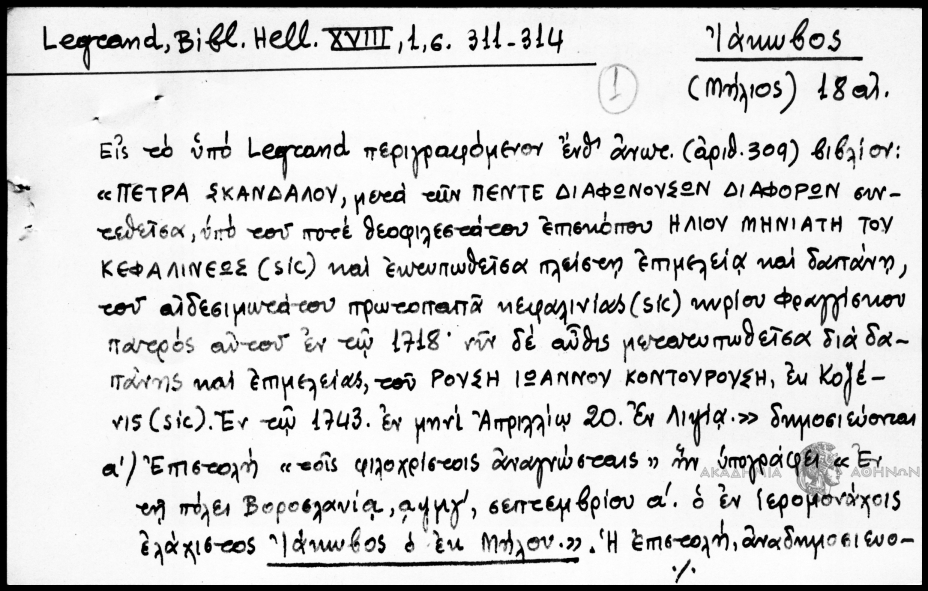 Legrand, Bibl. Hell. XVIII, 1, σ. 311-314
Ἰάκωβος
(Μήλιος) 18 αἰ.
1
Εἰς τό ὑπό Legrand περιγραφόμενον ἔνθ' ἀνωτ. (ἀριθ. 309) βιβλίον:
«ΠΕΤΡΑ ΣΚΑΝΔΑΛΟΥ, μετά τῶν ΠΕΝΤΕ ΔΙΑΦΩΝΟΥΣΩΝ ΔΙΑΦΟΡΩΝ συν-
τεθεῖσα, ὑπό τοῦ ποτέ θεοφιλεστάτου ἐπισκόπου ΗΛΙΟΥ ΜΗΝΙΑΤΗ ΤΟΥ
ΚΕΦΑΛΙΝΕΩΣ (sic) καί ἐκτυπωθεῖσα πλείστῃ ἐπιμελείᾳ καί δαπάνῃ,
τοῦ αἰδεσιμωτάτου πρωτοπαπᾶ κεφαλινίας (sic) κυρίου Φραγγίσκου
πατρός αὐτοῦ ἐν τῷ 1718· νῦν δέ αὖθις μετατυπωθεῖσα διά δα-
πάνης καί ἐπιμελείας, τοῦ ΡΟΥΣΗ ΙΩΑΝΝΟΥ ΚΟΝΤΟΥΡΟΥΣΗ, ἐκ Κοζέ-
νις (sic). Ἐν τῷ 1743. ἐν μηνί Ἀπριλλίῳ 20. Ἐν Λιψίᾳ.» δημοσιεύονται
α') Ἐπιστολή «τοῖς φιλοχρίστοις ἀναγνώσταις» ἥν ὑπογράφει «Ἐν
τῇ πόλει Βοροσλανίᾳ, ͵αψμγ', σεπτεμβρίου α'. ὁ ἐν ἱερομονάχοις
ἐλάχιστος Ἰάκωβος ὁ ἐκ Μήλου.». Ἡ ἐπιστολή, ἀναδημοσιευο-
./.
ΑΚΑΔΗΜΙΑ ΑΘΗΝΩΝ